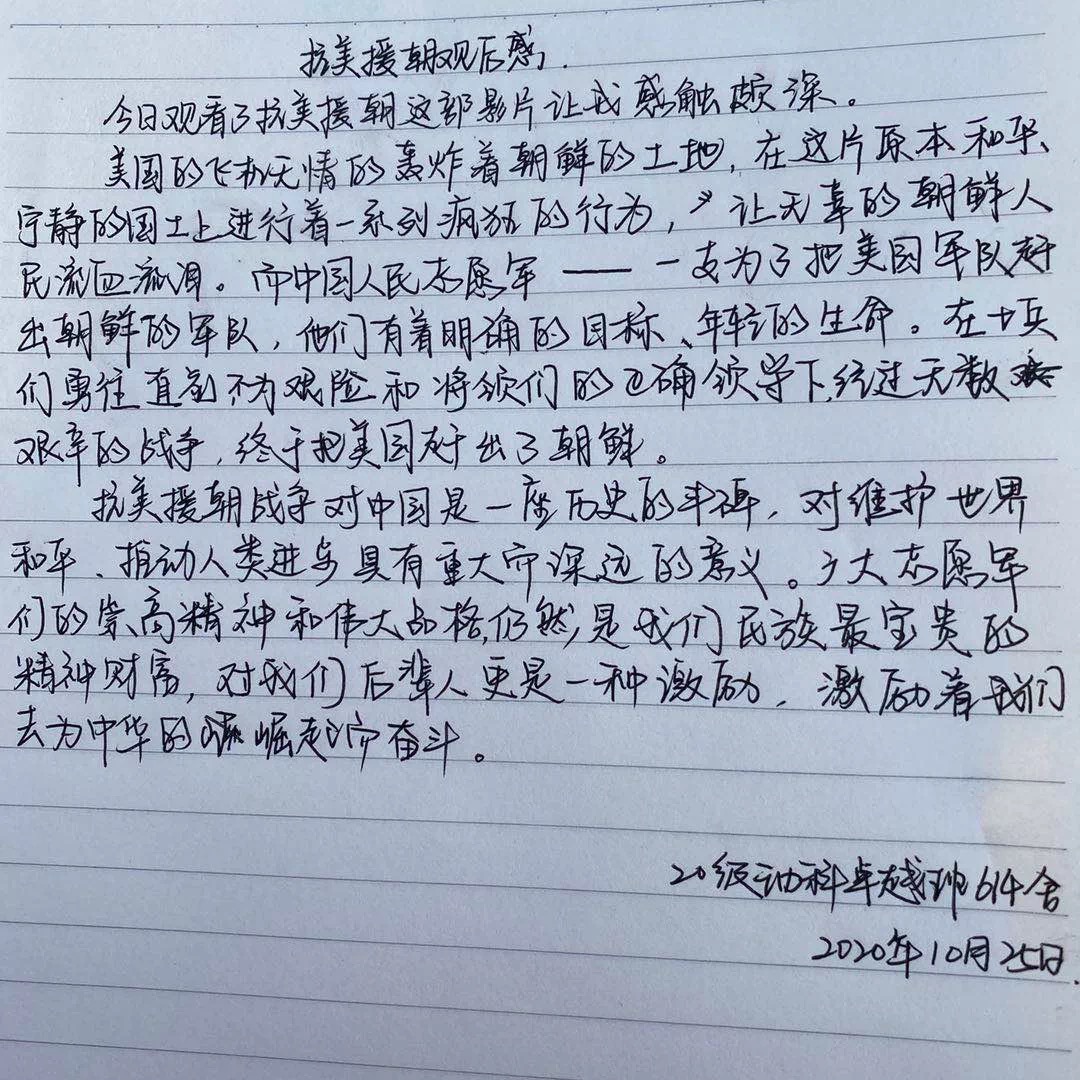 抗美援朝观后感.
今日观看了抗美援朝这部影片让我感触颇深。
美国的飞机无情的轰炸着朝鲜的土地,在这片原本和平、
宁静的国土上进行着一系列疯狂的行为,让无辜的朝鲜人
民流血流泪。而中国人民志愿军——一支为了把美国军队赶
出朝鲜的军队,他们有着明确的目标、年轻的生命。在士兵
们勇往直前不为艰险和将领们的正确领导下,经过无数
艰辛的战争,终于把美国赶出了朝鲜。
抗美援朝战争对中国是一座历史的丰碑,对维护世界
和平、推动人类进步具有重大而深远的意义。广大志愿军
们的崇高精神和伟大品格,仍然,是我们民族最宝贵的
精神财富,对我们后辈人更是一种激励,激励着我们
去为中华的崛起而奋斗。
20级动科卓越班614舍
2020年10月25日.